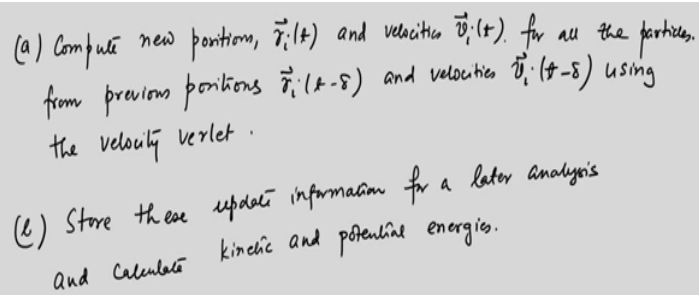 (a) Compute new positions, r⃗ᵢ(t) and velocities v⃗ᵢ(t). for all the particles.
from previous positions r⃗ᵢ(t-δ) and velocities v⃗ᵢ(t-δ) using
the velocity verlet.
(b) Store these update information for a later analysis
and calculate kinetic and potential energies.